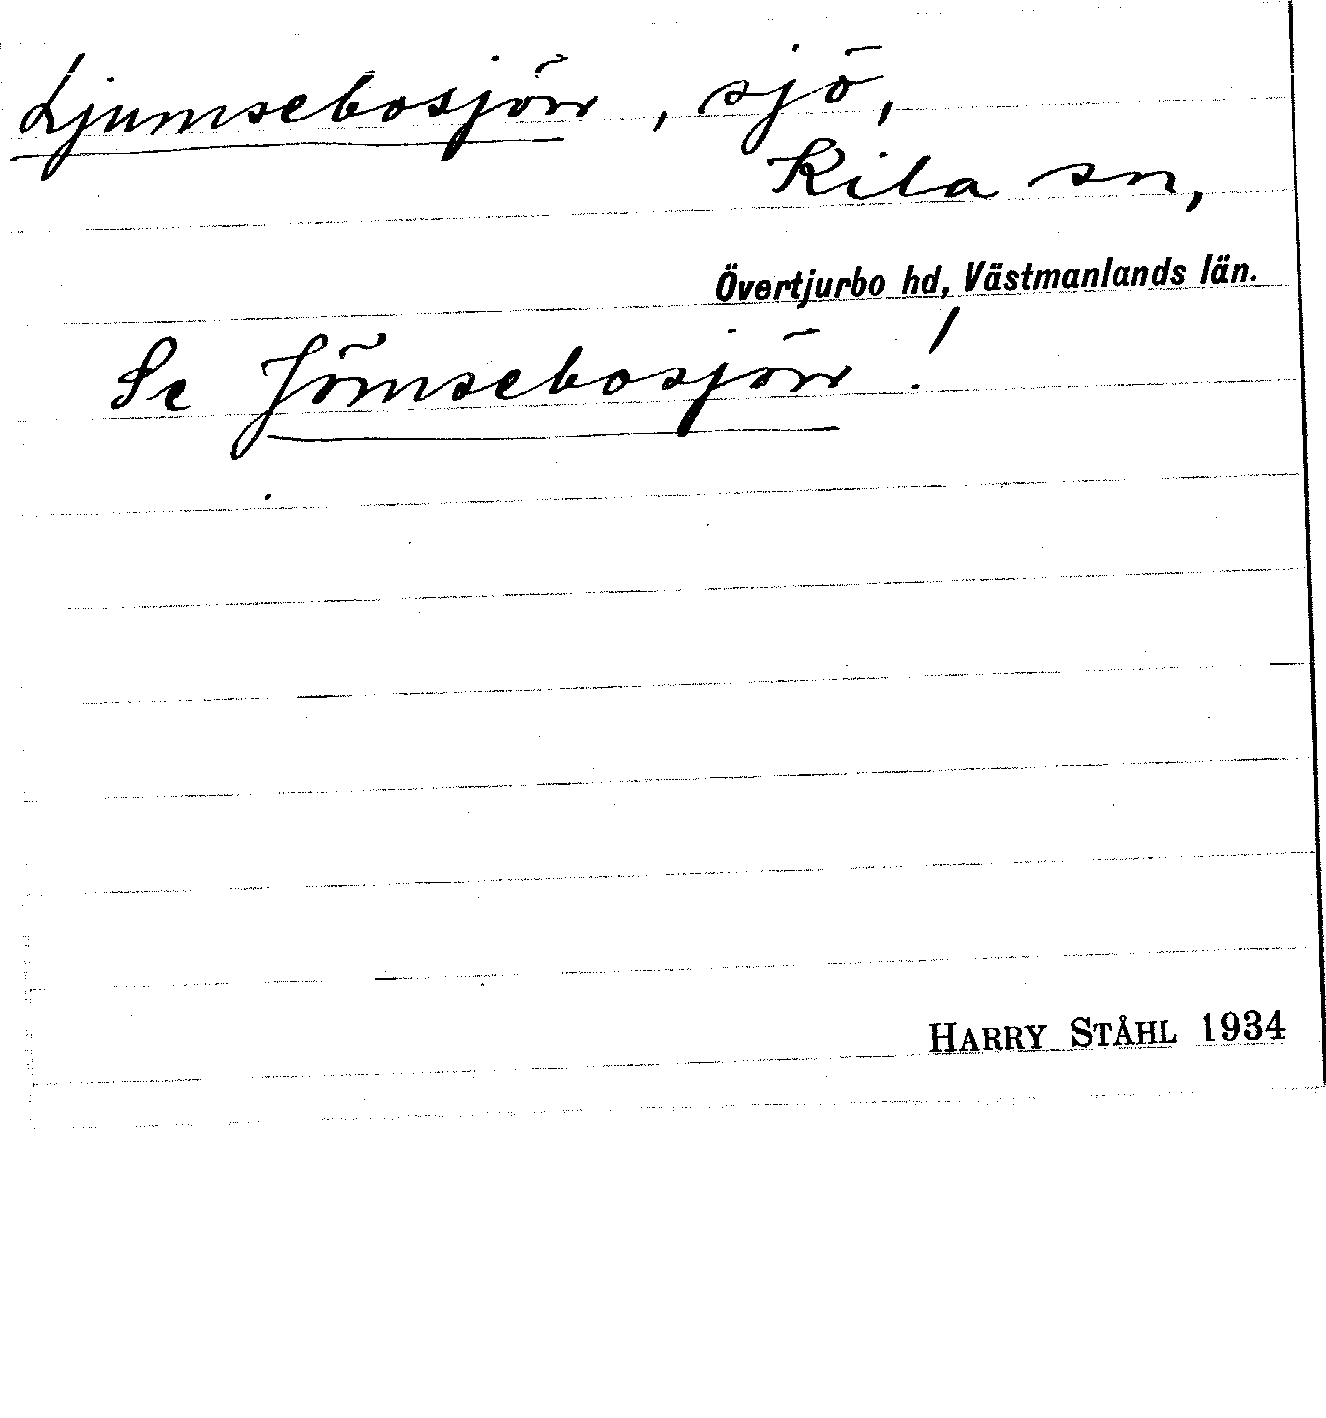 Ljumsebosjön, sjö,
Kila sn,
Övertjurbo hd, Västmanlands län.
Se Jömsebosjön!
HARRY STÅHL 1934